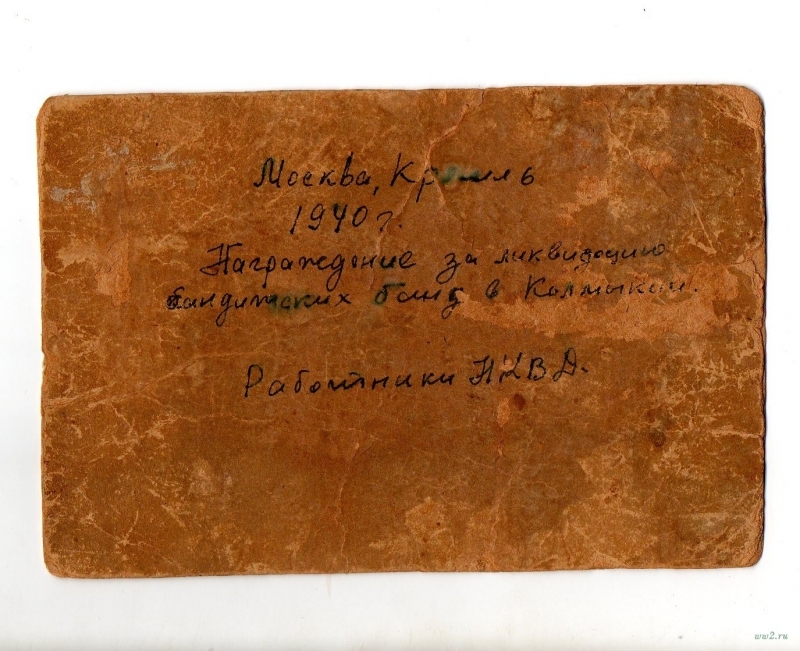 Москва, Кремль
1940 г.
Награждение за ликвидацию
бандитских банд в Калмыкии.
Работники НКВД.
ww2.ru